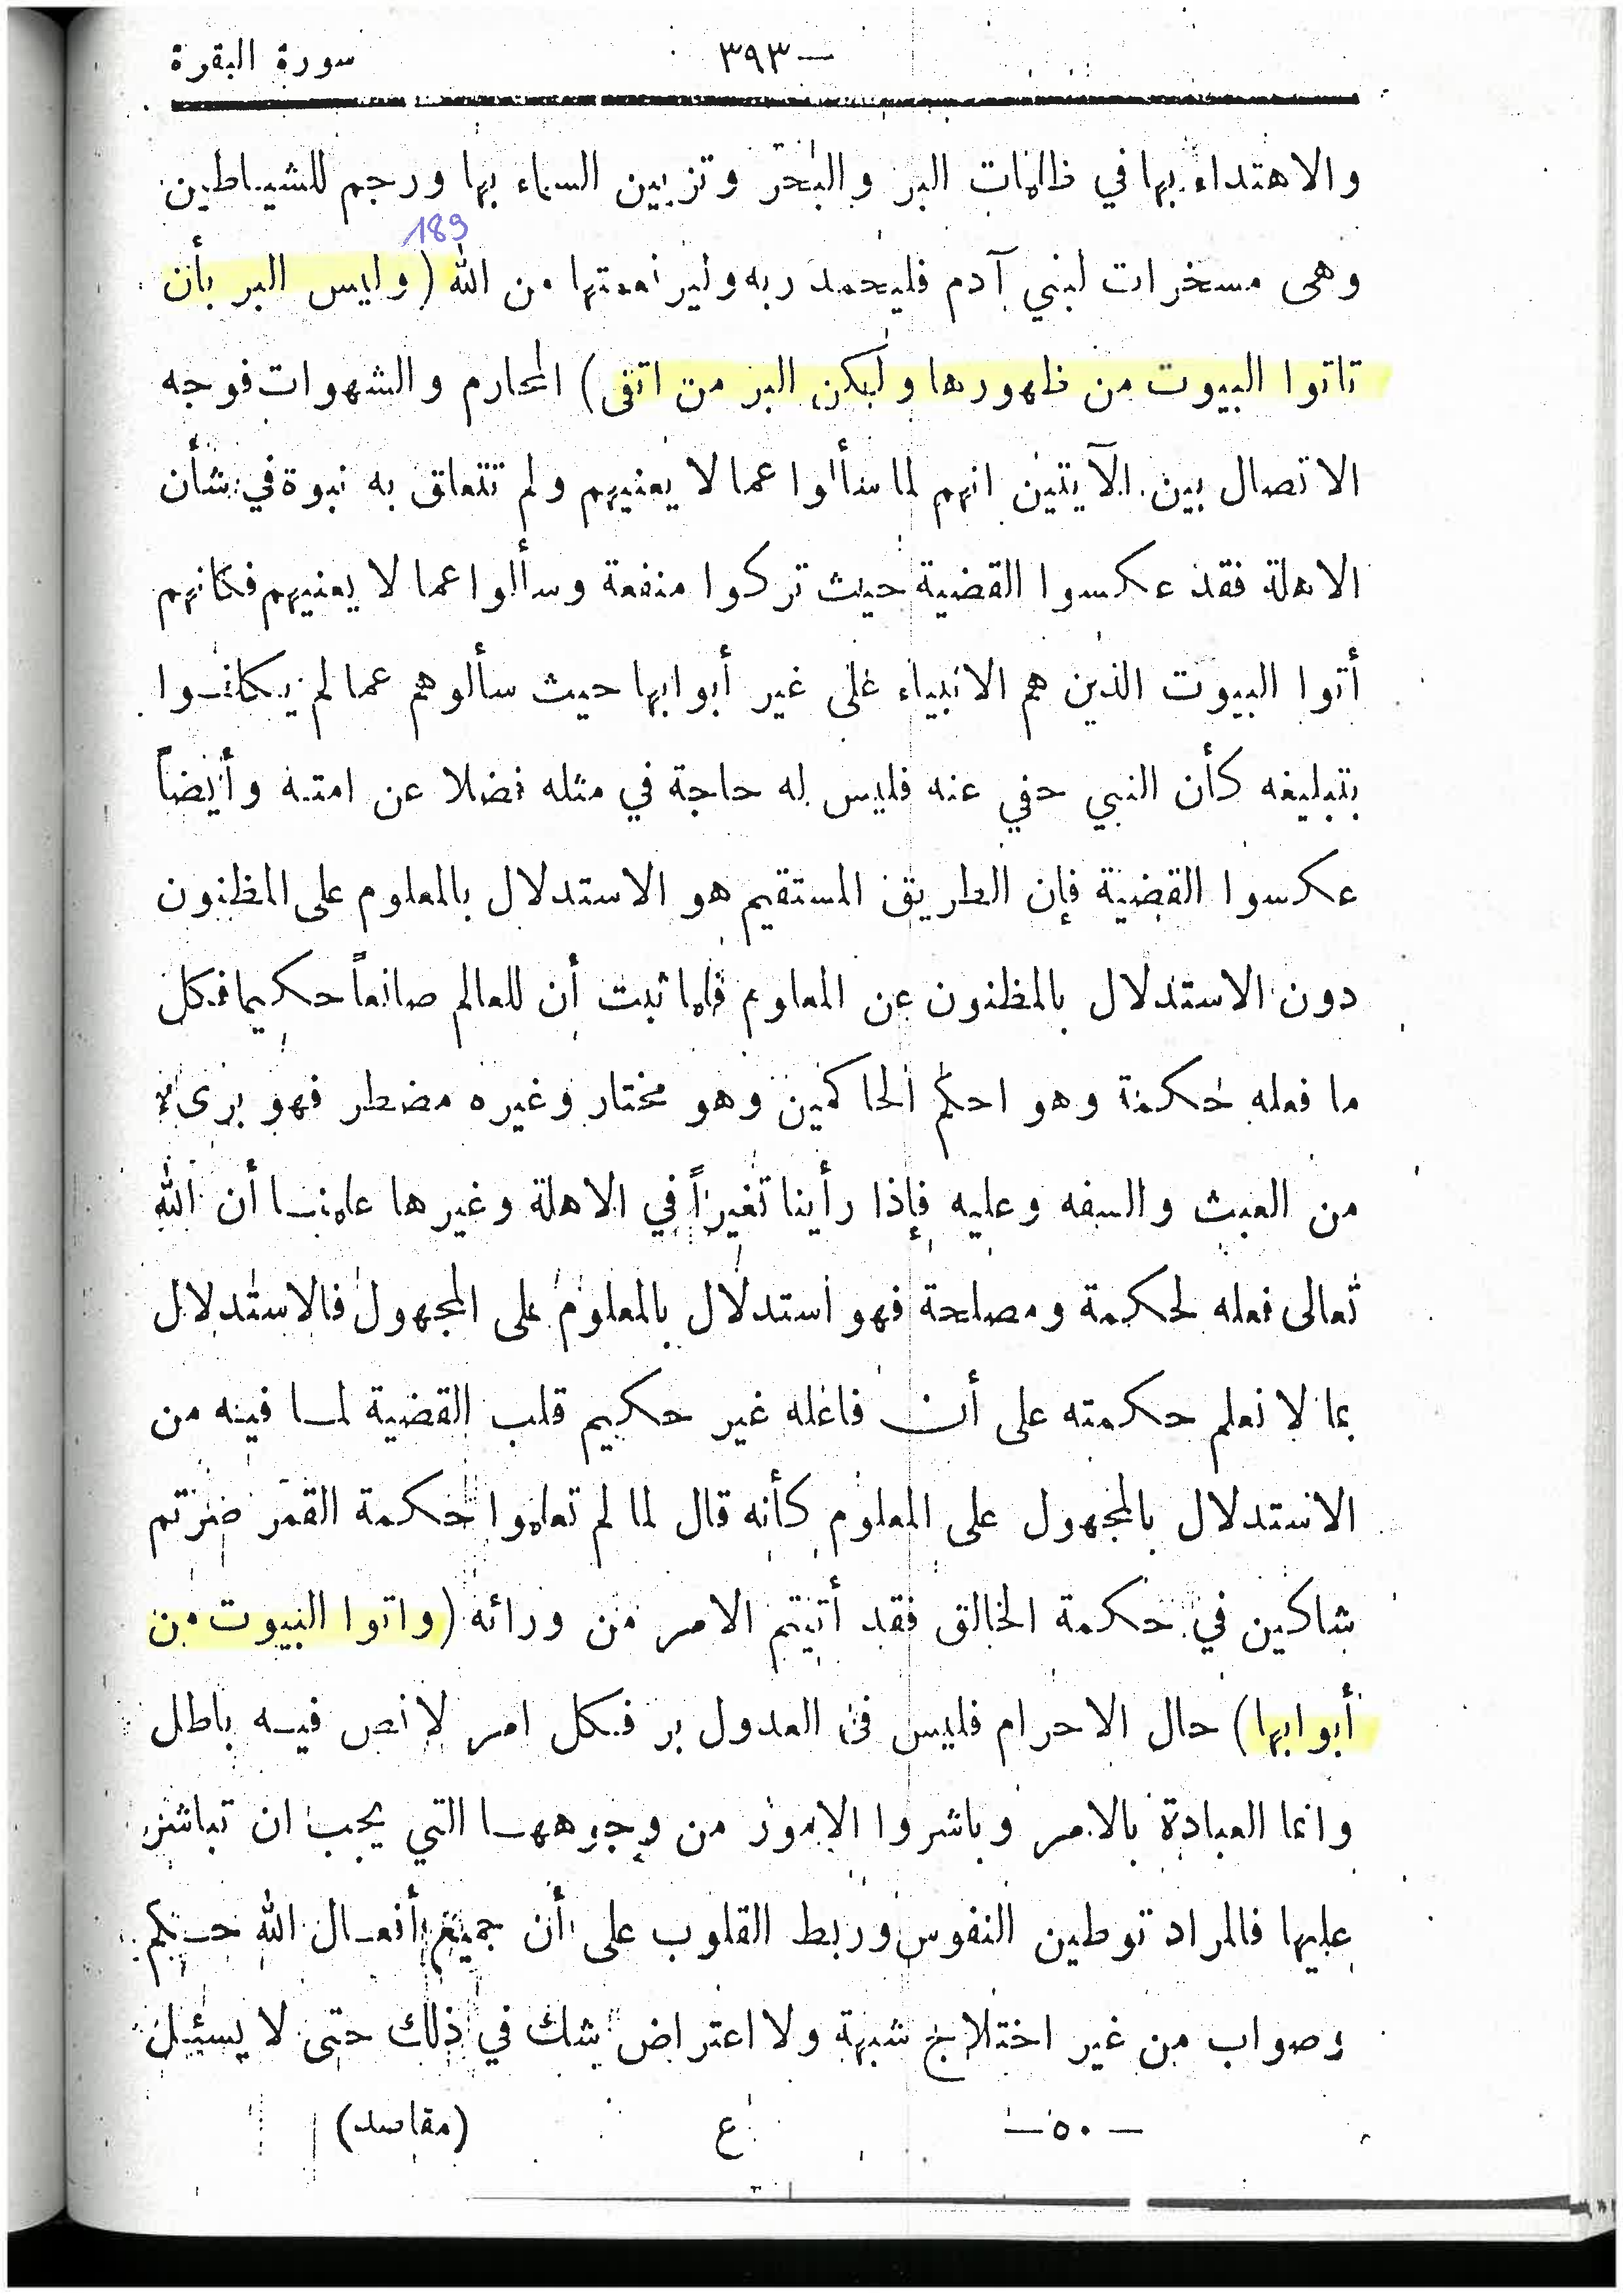 سورة البقرة —٣٩٣
والاهتداء بها في ظلمات البر والبحر وتزيين السماء بها ورجم للشياطين
189
وهى مسخرات لبني آدم فليحمد ربه ولير نعمتها من الله (وليس البر بأن
تاتوا البيوت من ظهورها ولكن البر من اتقى) المحارم والشهوات فوجه
الاتصال بين الآيتين انهم لما سألوا عما لا يعنيهم ولم تتعلق به نبوة في شأن
الاهلة فقد عكسوا القضية حيث تركوا منفعة وسألوا عما لا يعنيهم فكانهم
أتوا البيوت الذين هم الانبياء على غير أبوابها حيث سألوهم عما لم يكلفوا
بتبليغه كأن النبي حفي عنه فليس له حاجة في مثله فضلا عن امته وأيضاً
عكسوا القضية فإن الطريق المستقيم هو الاستدلال بالمعلوم على المظنون
دون الاستدلال بالمظنون عن المعلوم فلما ثبت أن للعالم صانعاً حكيما فكل
ما فعله حكمة وهو احكم الحاكمين وهو مختار وغيره مضطر فهو برىء
من العبث والسفه وعليه فإذا رأينا تغيراً في الاهلة وغيرها علمنا أن الله
تعالى فعله لحكمة ومصلحة فهو استدلال بالمعلوم على المجهول فالاستدلال
بما لا نعلم حكمته على أن فاعله غير حكيم قلب القضية لما فيه من
الاستدلال بالمجهول على المعلوم كأنه قال لما لم تعلموا حكمة القمر صرتم
شاكين في حكمة الخالق فقد أتيتم الامر من ورائه (واتوا البيوت من
أبوابها) حال الاحرام فليس في العدول بر فكل امر لا نص فيه باطل
وانما العبادة بالامر وباشروا الامور من وجوهها التي يجب ان تباشر
عليها فالمراد توطين النفوس وربط القلوب على أن جميع أفعال الله حكم
وصواب من غير اختلاج شبهة ولا اعتراض شك في ذلك حتى لا يسئل
— ٥٠ — ع (مقاصد)